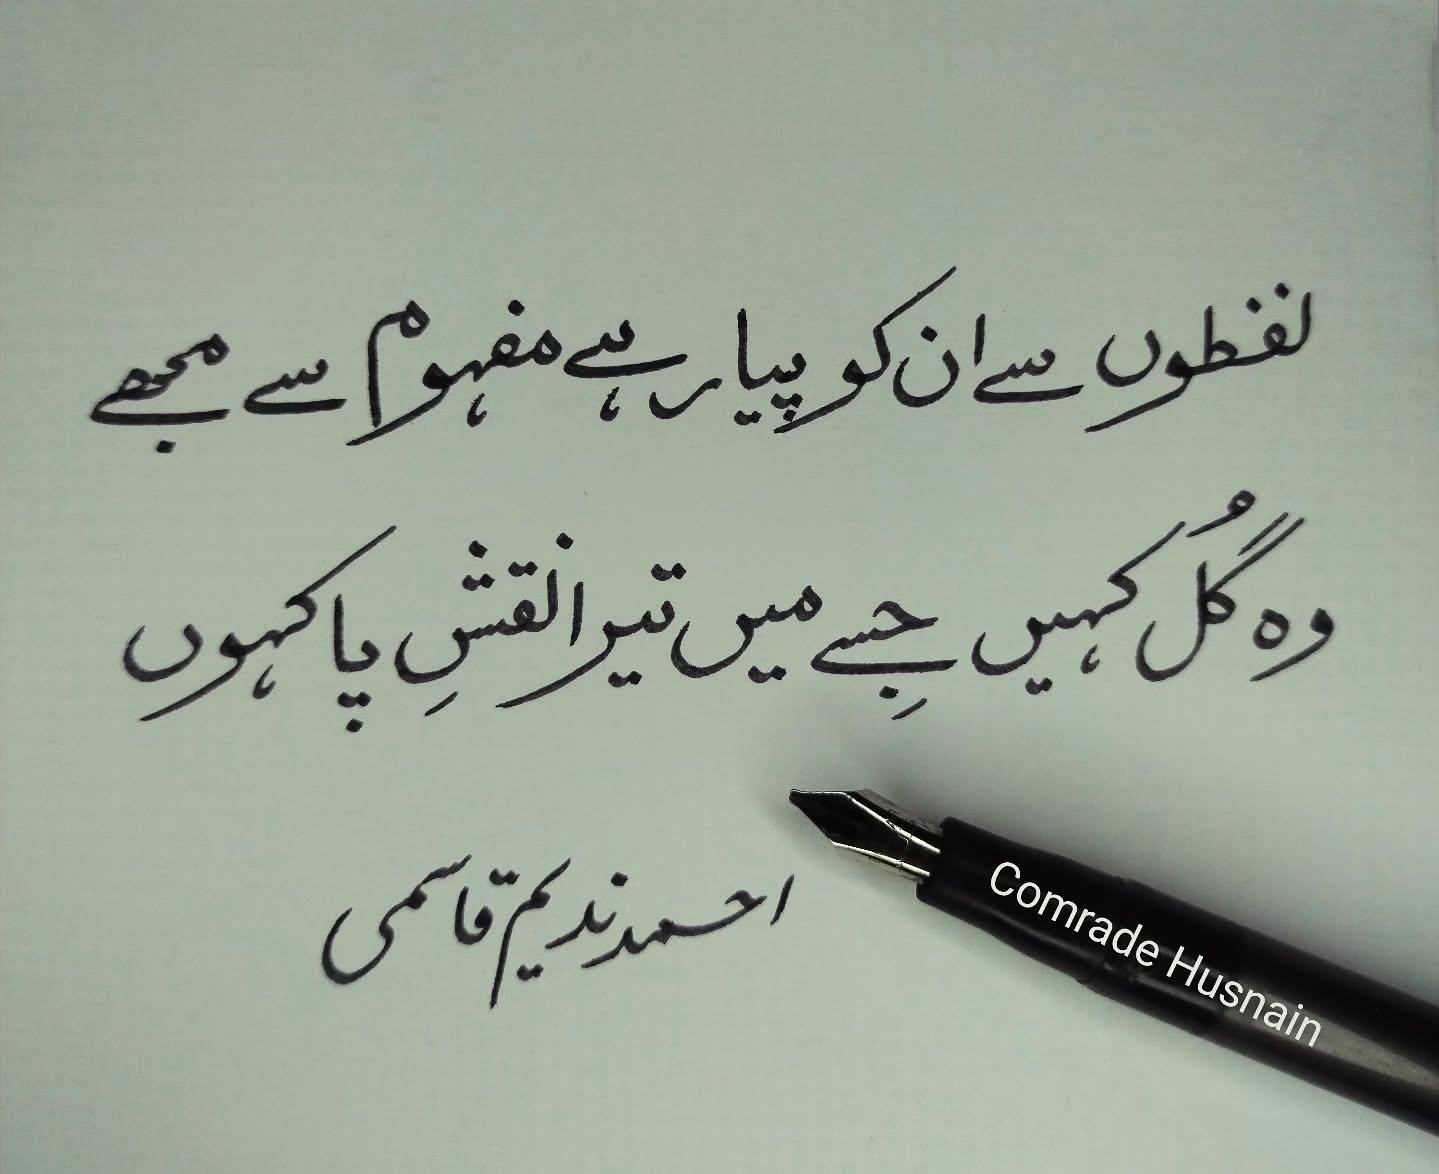 لفظوں سے ان کو پیار ہے مفہوم سے مجھے
وہ گُل کہیں جِسے میں تیرا نقشِ پا کہوں
احمد ندیم قاسمی
Comrade Husnain